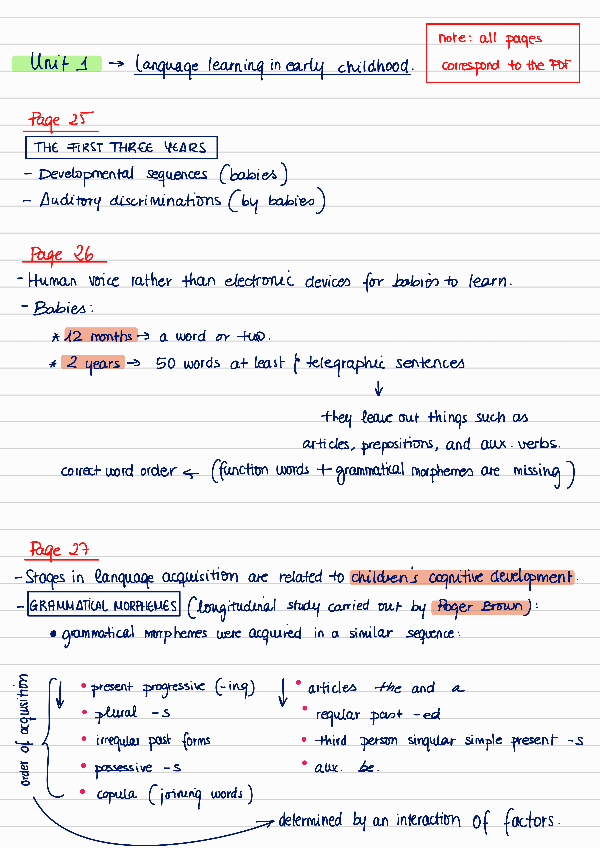 Unit 1 → Language learning in early childhood.
note: all pages
correspond to the PDF
Page 25
THE FIRST THREE YEARS
- Developmental sequences (babies)
- Auditory discriminations (by babies)
Page 26
- Human voice rather than electronic devices for babies to learn.
- Babies:
* 12 months → a word or two.
* 2 years → 50 words at least / telegraphic sentences
↓
they leave out things such as
articles, prepositions, and aux. verbs.
correct word order ← (function words + grammatical morphemes are missing)
Page 27
- Stages in language acquisition are related to children's cognitive development.
- GRAMMATICAL MORPHEMES (longitudinal study carried out by Roger Brown):
• grammatical morphemes were acquired in a similar sequence:
order of acquisition
• present progressive (-ing)
• plural -s
• irregular past forms
• possessive -s
• copula (joining words)
• articles the and a
• regular past -ed
• third person singular simple present -s
• aux. be.
→ determined by an interaction of factors.